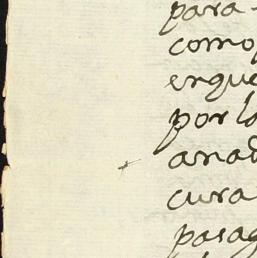 para
como
enque
por lo
anad
cura
pasag